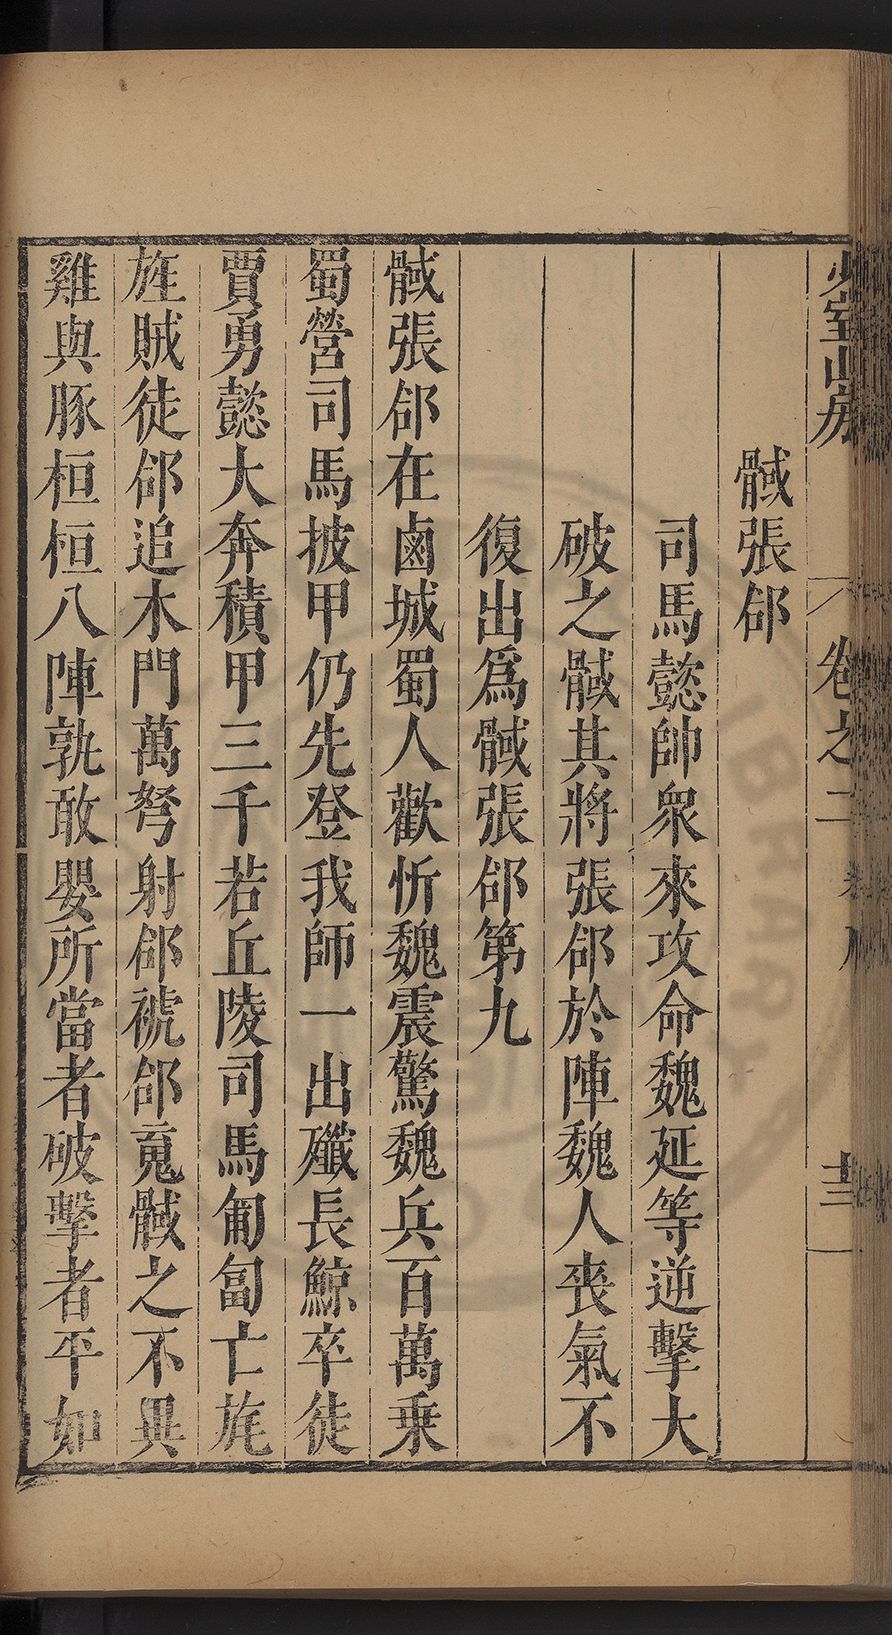 少室山房
卷之二
十三
馘張郃
司馬懿帥衆來攻命魏延等逆擊大
破之馘其將張郃於陣魏人喪氣不
復出爲馘張郃第九
馘張郃在鹵城蜀人歡忻魏震驚魏兵百萬乗
蜀營司馬披甲仍先登我師一出殲長鯨卒徒
賈勇懿大奔積甲三千若丘陵司馬匍匐亡旄
旌賊徒郃追木門萬弩射郃褫郃䰟馘之不異
雞與豚桓桓八陣孰敢嬰所當者破擊者平如